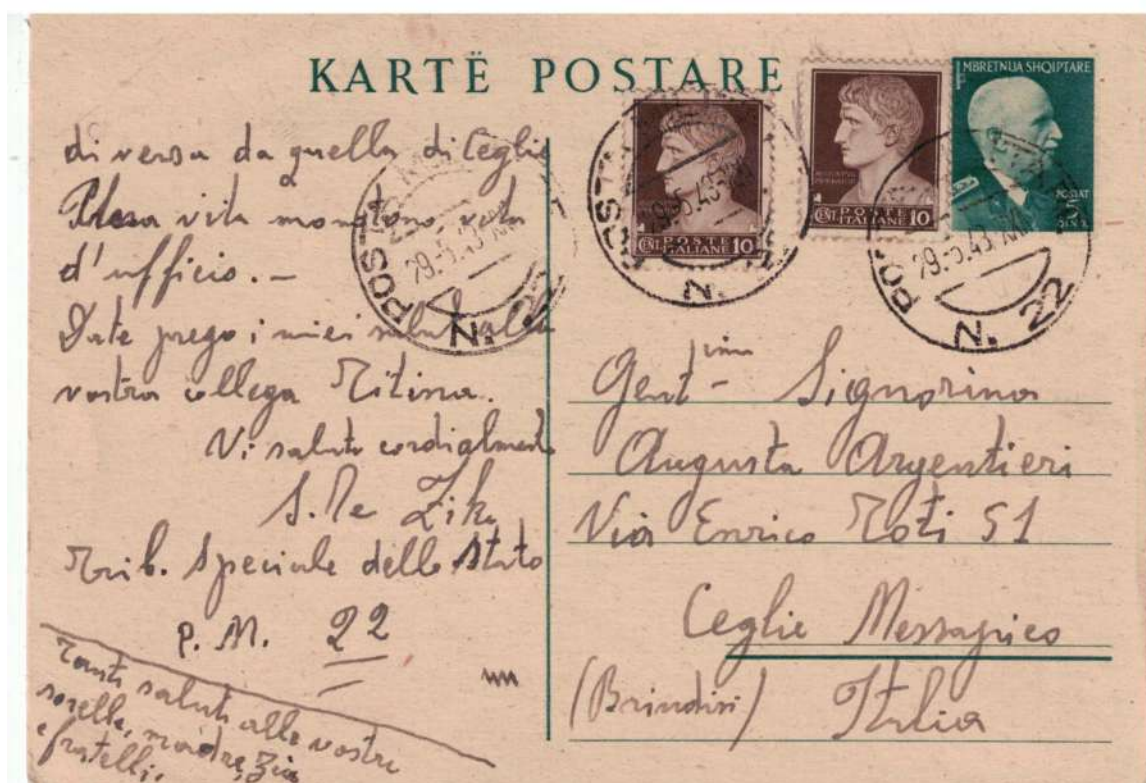 KARTË POSTARE
MBRETNIJA SHQIPTARE
CENT. POSTE ITALIANE 10
CENT. POSTE ITALIANE 10
POSTA
29.5.43
N. 22
29.5.43
N.
29.5.43
N. 22
diversa da quella di Ceglie
vita monotona vita
d'ufficio. –
Date prego i miei saluti alla
vostra collega Titina.
Vi saluto cordialmente
S. De
Trib. Speciale dello Stato
P. M. 22
Tanti saluti alle vostre
sorelle, madre, zia
e fratelli.
Gent.ima Signorina
Augusta Argentieri
Via Enrico Toti 51
Ceglie Messapico
(Brindisi) Italia